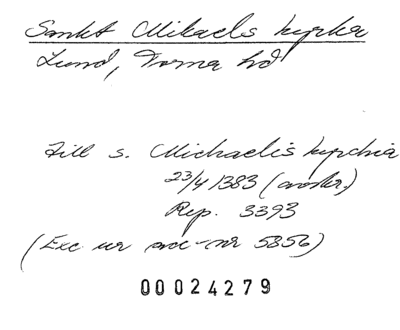 Sankt Mikaels kyrka
Lund, Torna hd
till s. Michaelis kyrchia
23/4 1383 (avskr.)
Rep. 3393
(Exc ur acc-nr 5856)
00024279